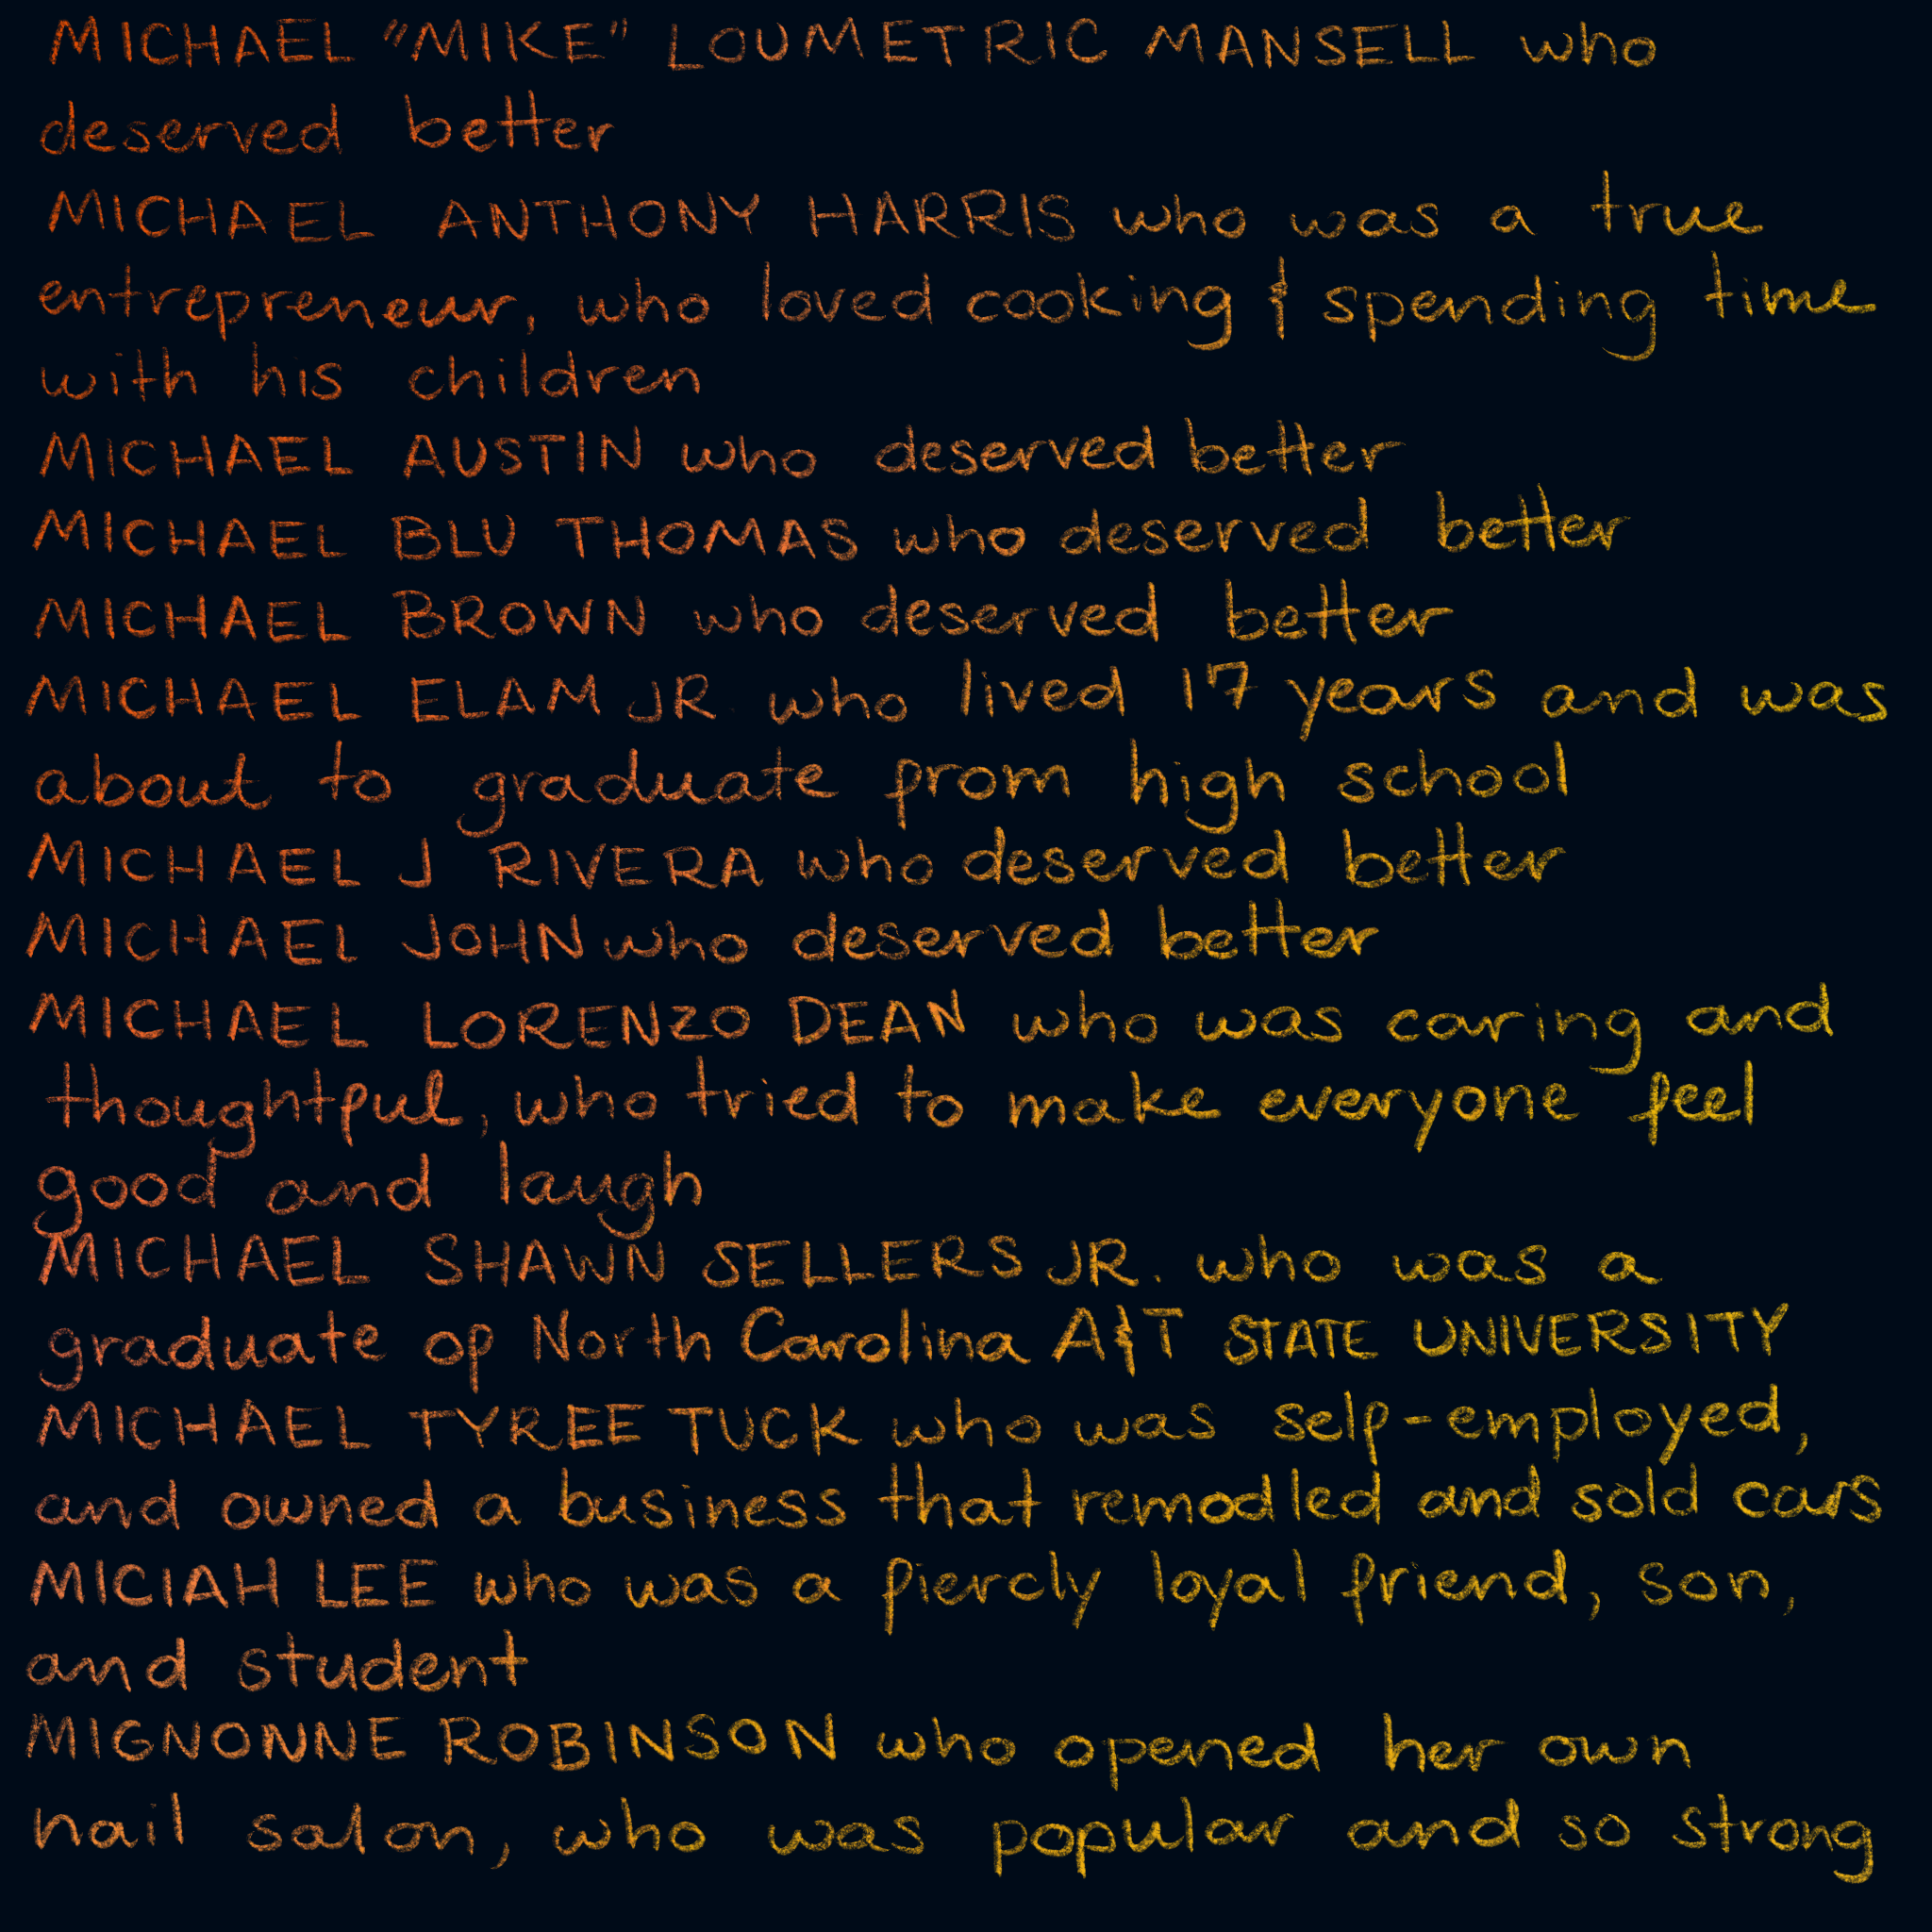 MICHAEL "MIKE" LOUMETRIC MANSELL who
deserved better
MICHAEL ANTHONY HARRIS who was a true
entrepreneur, who loved cooking & spending time
with his children
MICHAEL AUSTIN who deserved better
MICHAEL BLU THOMAS who deserved better
MICHAEL BROWN who deserved better
MICHAEL ELAM JR who lived 17 years and was
about to graduate from high school
MICHAEL J RIVERA who deserved better
MICHAEL JOHN who deserved better
MICHAEL LORENZO DEAN who was caring and
thoughtful, who tried to make everyone feel
good and laugh
MICHAEL SHAWN SELLERS JR. who was a
graduate of North Carolina A&T STATE UNIVERSITY
MICHAEL TYREE TUCK who was self-employed,
and owned a business that remodled and sold cars
MICIAH LEE who was a fiercly loyal friend, son,
and student
MIGNONNE ROBINSON who opened her own
nail salon, who was popular and so strong